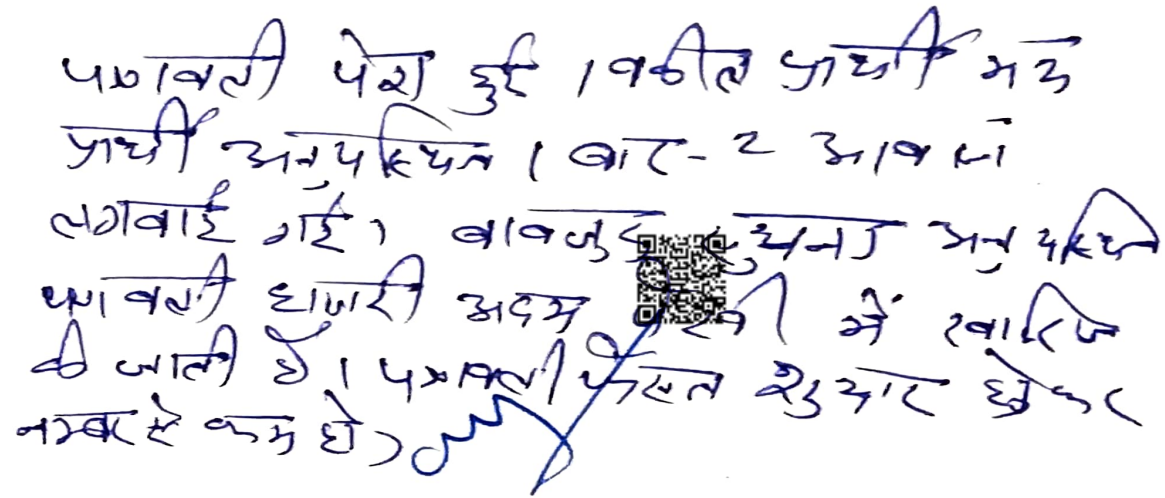 पत्रावली पेश हुई । वकील प्रार्थी मय
प्रार्थी अनुपस्थित । बार-2 आवाजें
लगवाई गई। बावजूद सूचना अनुपस्थित
पत्रावली हाजरी अदम में खारिज
की जाती है । पत्रावली फैसल शुमार होकर
नम्बर से कम हो।